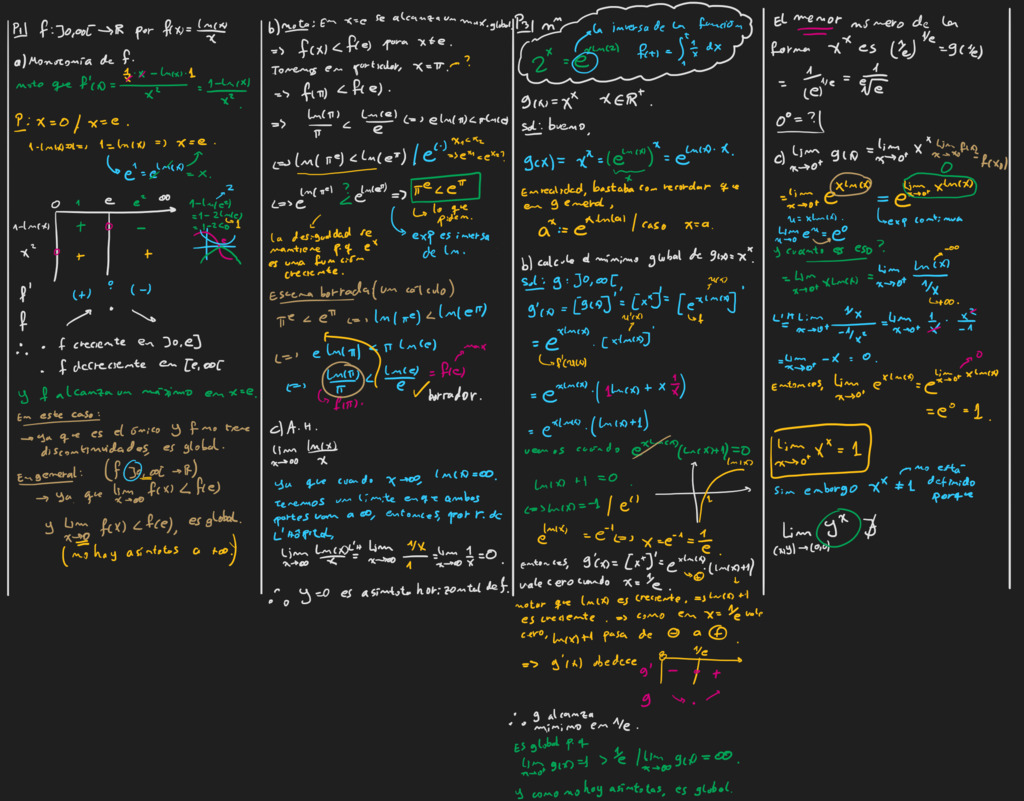 P1 f: ]0,∞[ → ℝ por f(x) = ln(x)/x
a) Monotonía de f.
noto que f'(x) = (1/x · x − ln(x)·1)/x² = (1−ln(x))/x²
P: x=0 / x=e.
1−ln(x)=0 => 1=ln(x) => x=e
e¹ = e^(ln(x)) = x.
0 1 e e² ∞
1−ln(x) + −
=1−2ln(e)
=1−2<0
x² + +
f' (+) (−)
f
∴ f creciente en ]0,e]
f decreciente en [e,∞[
y f alcanza un máximo en x=e.
En este caso:
→ ya que es el único y f no tiene
discontinuidades, es global.
En general: (f ]0,∞[ → ℝ)
→ ya que lim x→∞ f(x) < f(e)
y lim x→0 f(x) < f(e), es global.
(no hay asíntotas a +∞)
b) noto: En x=e se alcanza un max. global
=> f(x) < f(e) para x≠e.
Tomemos en particular, x=π. ?
=> f(π) < f(e).
=> ln(π)/π < ln(e)/e <=> e ln(π) < π ln(e)
<=> ln(π^e) < ln(e^π) / e^(·) x₁<x₂ => e^x₁ < e^x₂?
<=> e^(ln(π^e)) <? e^(ln(e^π)) => π^e < e^π
lo que piden.
la desigualdad se
mantiene p.q e^x
es una función
creciente.
exp es inversa
de ln.
Escena borrada (un cálculo)
π^e < e^π <=> ln(π^e) < ln(e^π)
<=> e ln(π) < π ln(e)
<=> ln(π)/π < ln(e)/e = f(e) max
f(π). borrador.
c) A.H.
lim x→∞ ln(x)/x
ya que cuando x→∞, ln(x)=∞.
tenemos un límite en que ambas
partes van a ∞, entonces, por r. de
L'Hôpital,
lim x→∞ ln(x)/x L'H = lim x→∞ (1/x)/1 = lim x→∞ 1/x = 0.
∴ y=0 es asíntota horizontal de f.
P3
la inversa de la función
2^x = e^(x ln(2)) f(t) = ∫₁ᵗ 1/x dx
g(x) = x^x x∈ℝ⁺.
sol: bueno,
g(x) = x^x = (e^(ln(x)))^x = e^(ln(x)·x).
En realidad, bastaba con recordar que
en general,
a^x := e^(x ln(a)) / caso x=a.
b) calcule el mínimo global de g(x)=x^x.
Sol: g: ]0,∞[,
g'(x) = [g(x)]' = [x^x]' = [e^(x ln(x))]'
= e^(x ln(x)) · [x ln(x)]'
= e^(x ln(x)) · (1 ln(x) + x 1/x)
= e^(x ln(x)) · (ln(x)+1)
vemos cuando e^(x ln(x)) (ln(x)+1)=0
ln(x)
1
ln(x)+1 = 0
<=> ln(x) = −1 / e^( )
e^(ln(x)) = e^(−1) <=> x = e^(−1) = 1/e
entonces, g'(x) = [x^x]' = e^(x ln(x)) · (ln(x)+1)
vale cero cuando x = 1/e.
notar que ln(x) es creciente => ln(x)+1
es creciente. => como en x=1/e vale
cero, ln(x)+1 pasa de ⊖ a ⊕.
=> g'(x) obedece 0 1/e
g' − · +
g
∴ g alcanza
mínimo en 1/e.
Es global p.q
lim x→0⁺ g(x)=1 > 1/e / lim x→∞ g(x) = ∞.
y como no hay asíntotas, es global.
El menor número de la
forma x^x es (1/e)^(1/e) = g(1/e)
= 1/(e)^(1/e) = 1/ᵉ√e
0⁰ = ?
c) lim x→0⁺ g(x) = lim x→0⁺ x^x
= lim x→0⁺ e^(x ln(x)) = e^(lim x→0⁺ x ln(x)) 0
u = x ln(x).
lim u→0 e^u = e⁰
exp continua
y cuánto es eso?
= lim x→0⁺ x ln(x) = lim x→0⁺ ln(x)/(1/x) −∞
→∞.
L'H = lim x→0⁺ (1/x)/(−1/x²) = lim x→0⁺ 1/x · x²/−1
= lim x→0⁺ −x = 0.
Entonces, lim x→0⁺ e^(x ln(x)) = e^(lim x→0⁺ x ln(x)) 0
= e⁰ = 1.
lim x→0⁺ x^x = 1
sin embargo x^x ≠ 1 no está
definido
porque
lim (x,y)→(0,0) y^x ∄